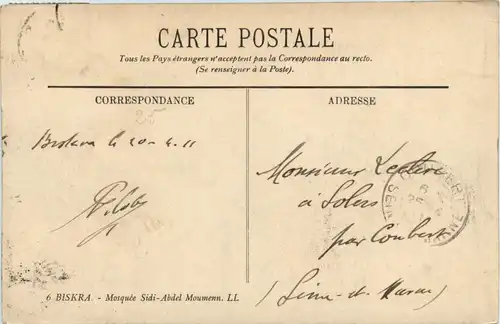 CARTE POSTALE
Tous les Pays étrangers n'acceptent pas la Correspondance au recto.
(Se renseigner à la Poste).
CORRESPONDANCE
ADRESSE
25
Biskra le 20 - 4 - 11
Monsieur Leclerc
à Solers
par Coubert
(Seine-et-Marne)
6 BISKRA. - Mosquée Sidi-Abdel Moumenn. LL